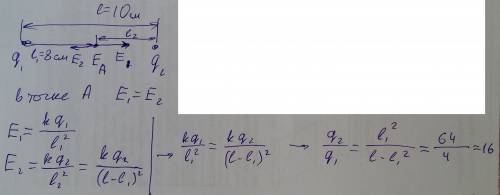 l=10см
l₂
q₁ l₁=8см E₂ E E₁ q₂
A
в точке A E₁=E₂
E₁ = kq₁/l₁²
E₂ = kq₂/l₂² = kq₂/(l-l₁)²
→ kq₁/l₁² = kq₂/(l-l₁)² → q₂/q₁ = l₁²/l-l₁² = 64/4 = 16